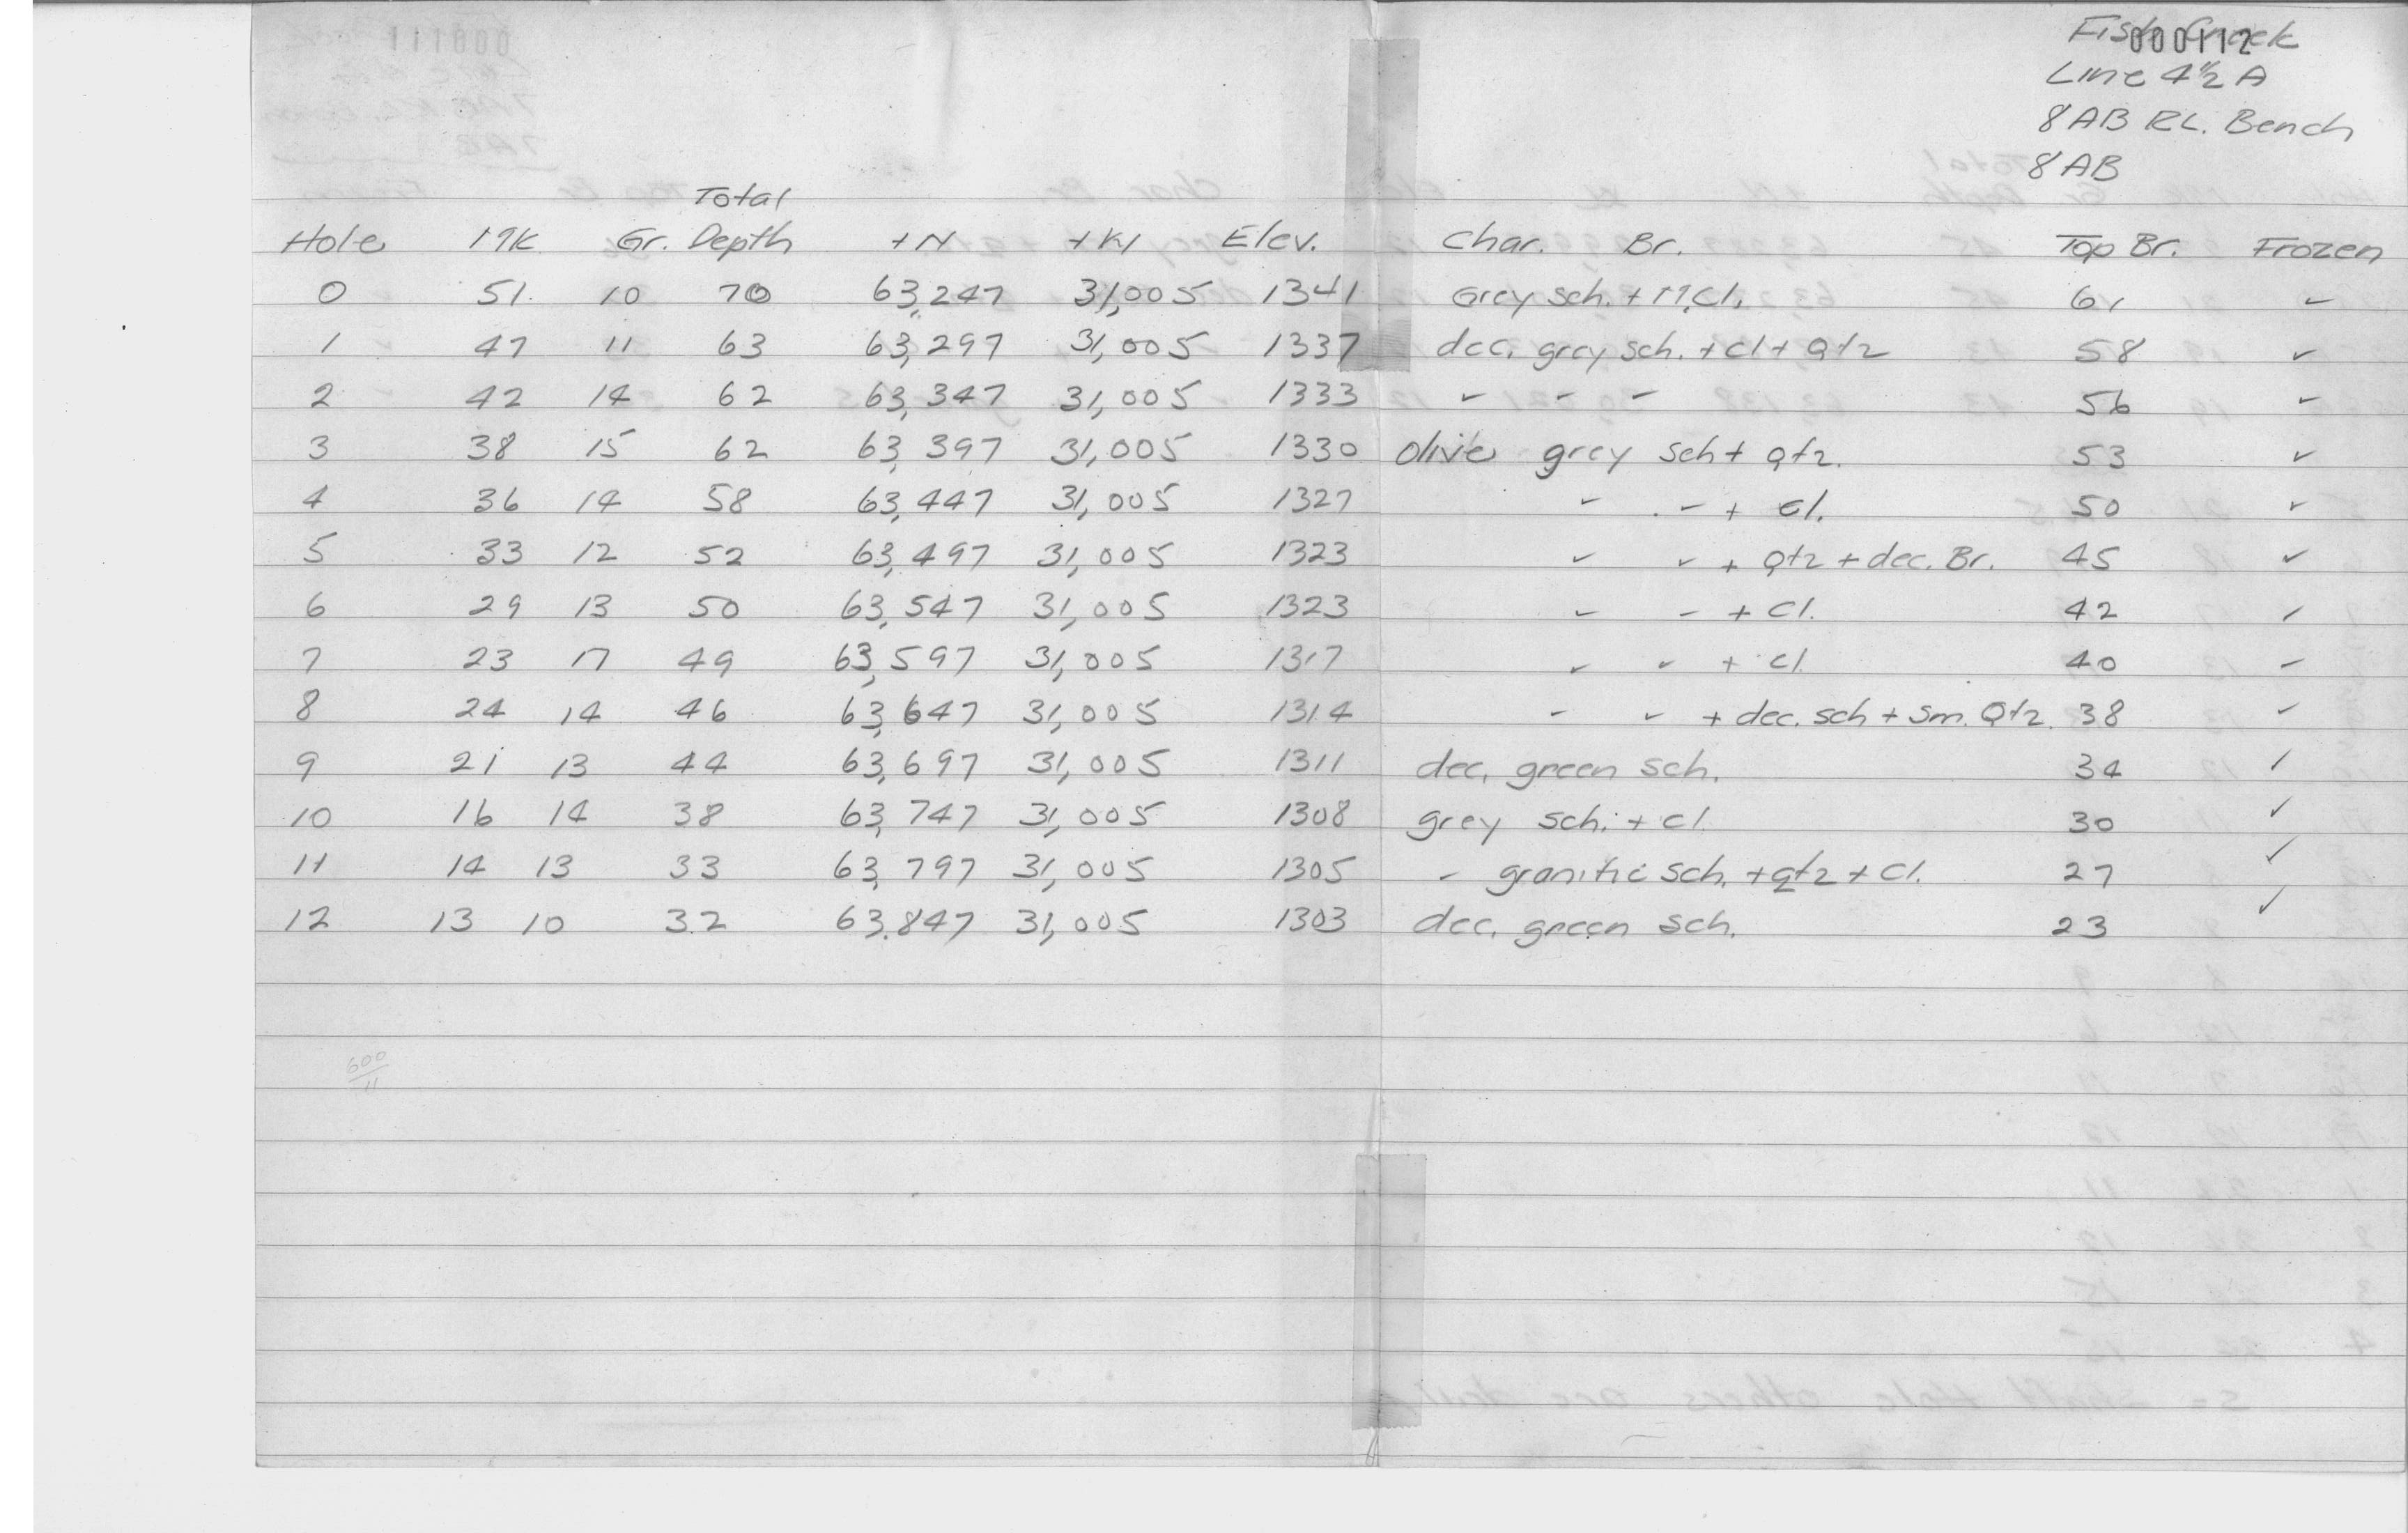 Fish Creek
000112
Line 4 1/2 A
8 AB RL. Bench
8 AB
Total
Hole MK Gr. Depth +N +W Elev. Char. Br. Top Br. Frozen
0 51 10 70 63,247 31,005 1341 Grey sch. + M.Cl. 61 ✓
1 47 11 63 63,297 31,005 1337 dec. grey sch. + cl + qtz 58 ✓
2 42 14 62 63,347 31,005 1333 " " " 56 ✓
3 38 15 62 63,397 31,005 1330 olive grey sch + qtz. 53 ✓
4 36 14 58 63,447 31,005 1327 " " + cl. 50 ✓
5 33 12 52 63,497 31,005 1323 " " + qtz + dec. Br. 45 ✓
6 29 13 50 63,547 31,005 1323 " " + cl. 42 ✓
7 23 17 49 63,597 31,005 1317 " " + cl 40 ✓
8 24 14 46 63,647 31,005 1314 " " + dec. sch + sm. Qtz. 38 ✓
9 21 13 44 63,697 31,005 1311 dec. green sch. 34 ✓
10 16 14 38 63,747 31,005 1308 grey sch. + cl. 30 ✓
11 14 13 33 63,797 31,005 1305 " granitic sch. + qtz + cl. 27 ✓
12 13 10 32 63,847 31,005 1303 dec. green sch. 23 ✓
600
11